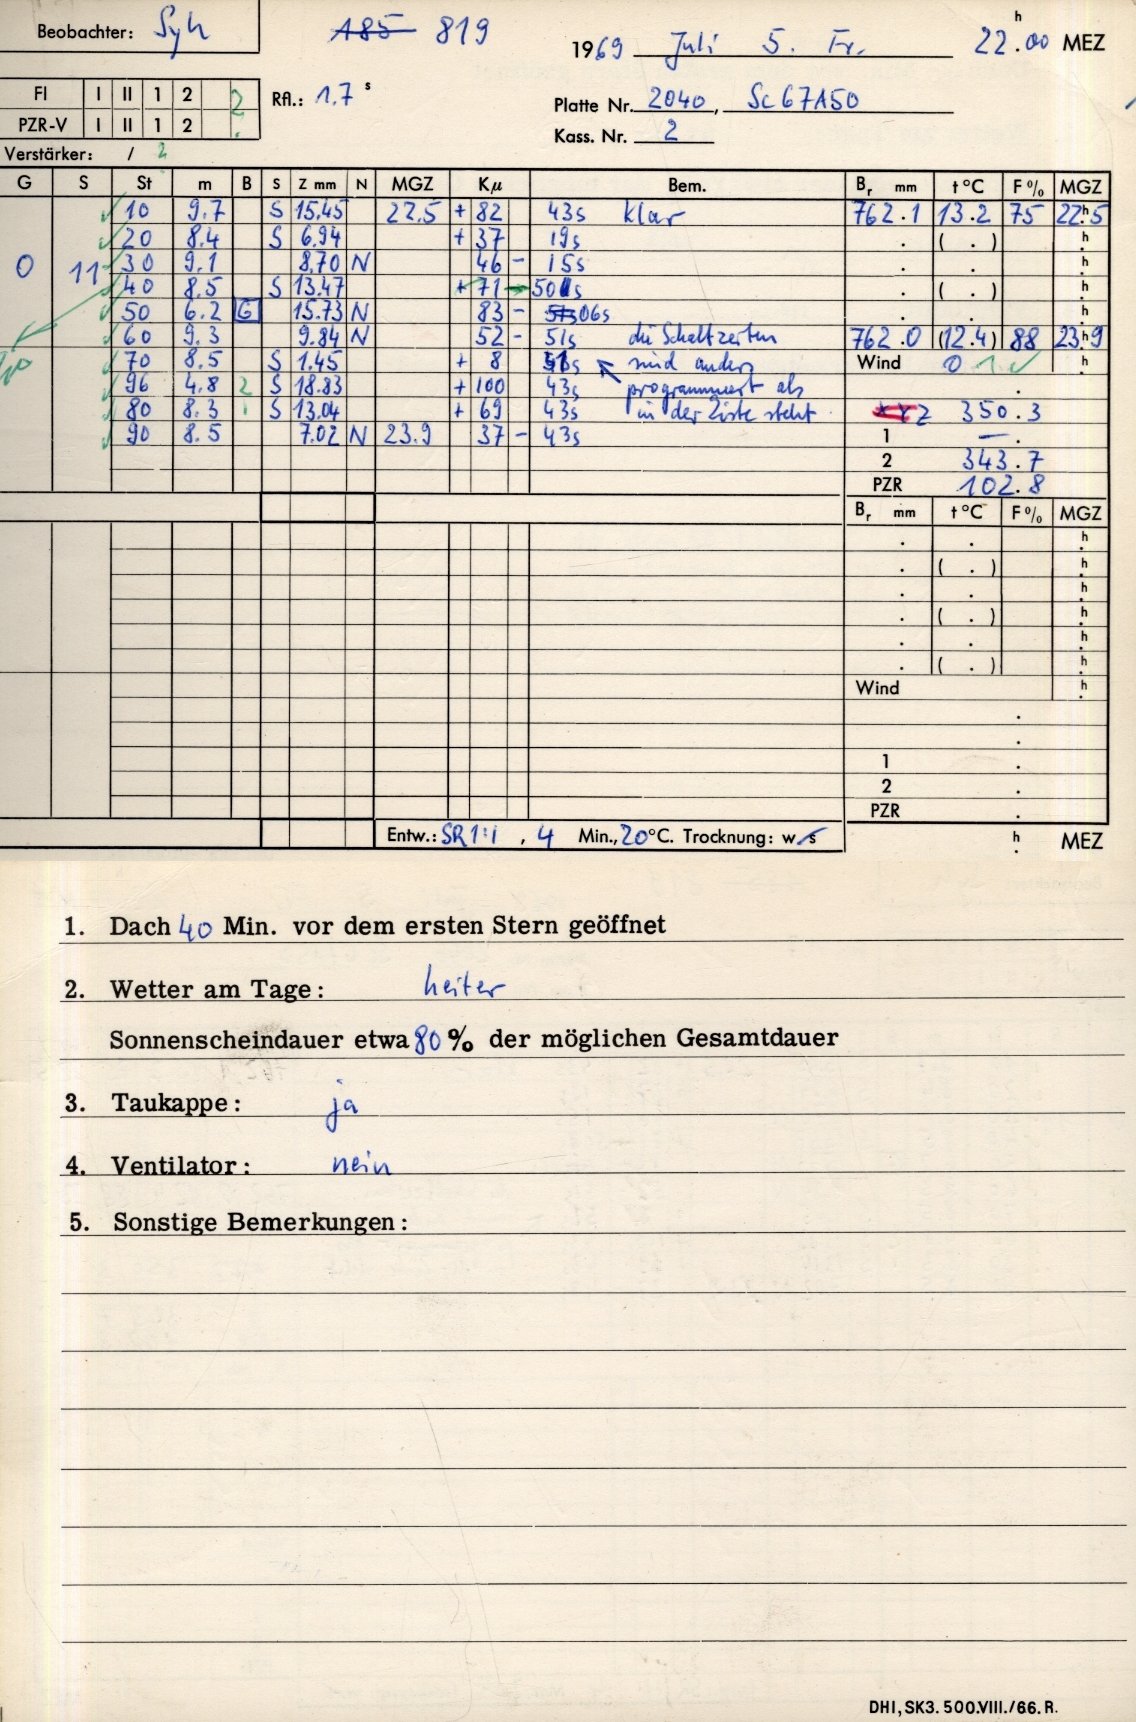 Beobachter: Syh 185 819 1969 Juli 5. Fr. 22.h00 MEZ
FI I II 1 2 2 Rfl.: 1.7 s Platte Nr. 2040, Sc67A50
PZR-V I II 1 2 Kass. Nr. 2
Verstärker: / 2
G S St m B S Z mm N MGZ Kµ Bem. Br mm t °C F % MGZ
10 9.7 S 15.45 22.5 + 82 43s klar 762.1 13.2 75 22.h5
20 8.4 S 6.94 + 37 19s . ( . ) h.
0 11 30 9.1 8.70 N 46 - 15s . . h.
40 8.5 S 13.47 + 71 → 50s . ( . ) h.
50 6.2 G 15.73 N 83 - 51s 06s . . h.
60 9.3 9.84 N 52 - 51s die Schaltzeiten 762.0 (12.4) 88 23.h9
70 8.5 S 1.45 + 8 sind anders Wind 0 1 h.
96 4.8 2 S 18.83 + 100 43s programmiert als .
80 8.3 1 S 13.04 + 69 43s in der Liste steht. 2 350.3
90 8.5 7.02 N 23.9 37 - 43s 1 — .
2 343.7
PZR 102.8
Br mm t °C F % MGZ
. . h.
. ( . ) h.
. . h.
. ( . ) h.
. . h.
. ( . ) h.
Wind h.
.
.
1 .
2 .
PZR .
Entw.: SR 1:1 , 4 Min., 20 °C. Trocknung: w/s h. MEZ
1. Dach 40 Min. vor dem ersten Stern geöffnet
2. Wetter am Tage: heiter
Sonnenscheindauer etwa 80 % der möglichen Gesamtdauer
3. Taukappe: ja
4. Ventilator: nein
5. Sonstige Bemerkungen:
DHI, SK3. 500.VIII./66. R.